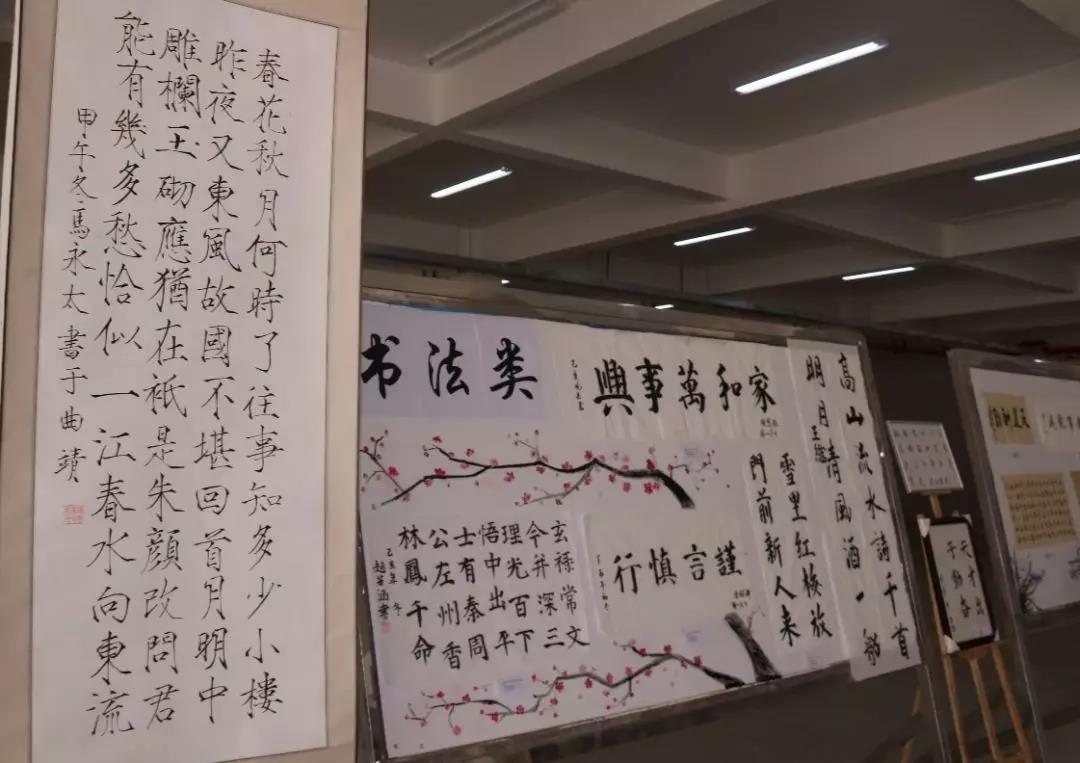 春花秋月何時了往事知多少小樓
昨夜又東風故國不堪回首月明中
雕欄玉砌應猶在衹是朱顔改問君
能有幾多愁恰似一江春水向東流
甲午冬馬永太書于曲靖
书法类
家和萬事興
高山流水詩千首
明月清風酒一船
雪里红梅放
门前新人来
謹言慎行
玄祿常文
今并深三
理光百下
悟中出平
士有秦周
公左州香
林鳳千命
己亥年冬
天才出
于勤奋
天道酬勤